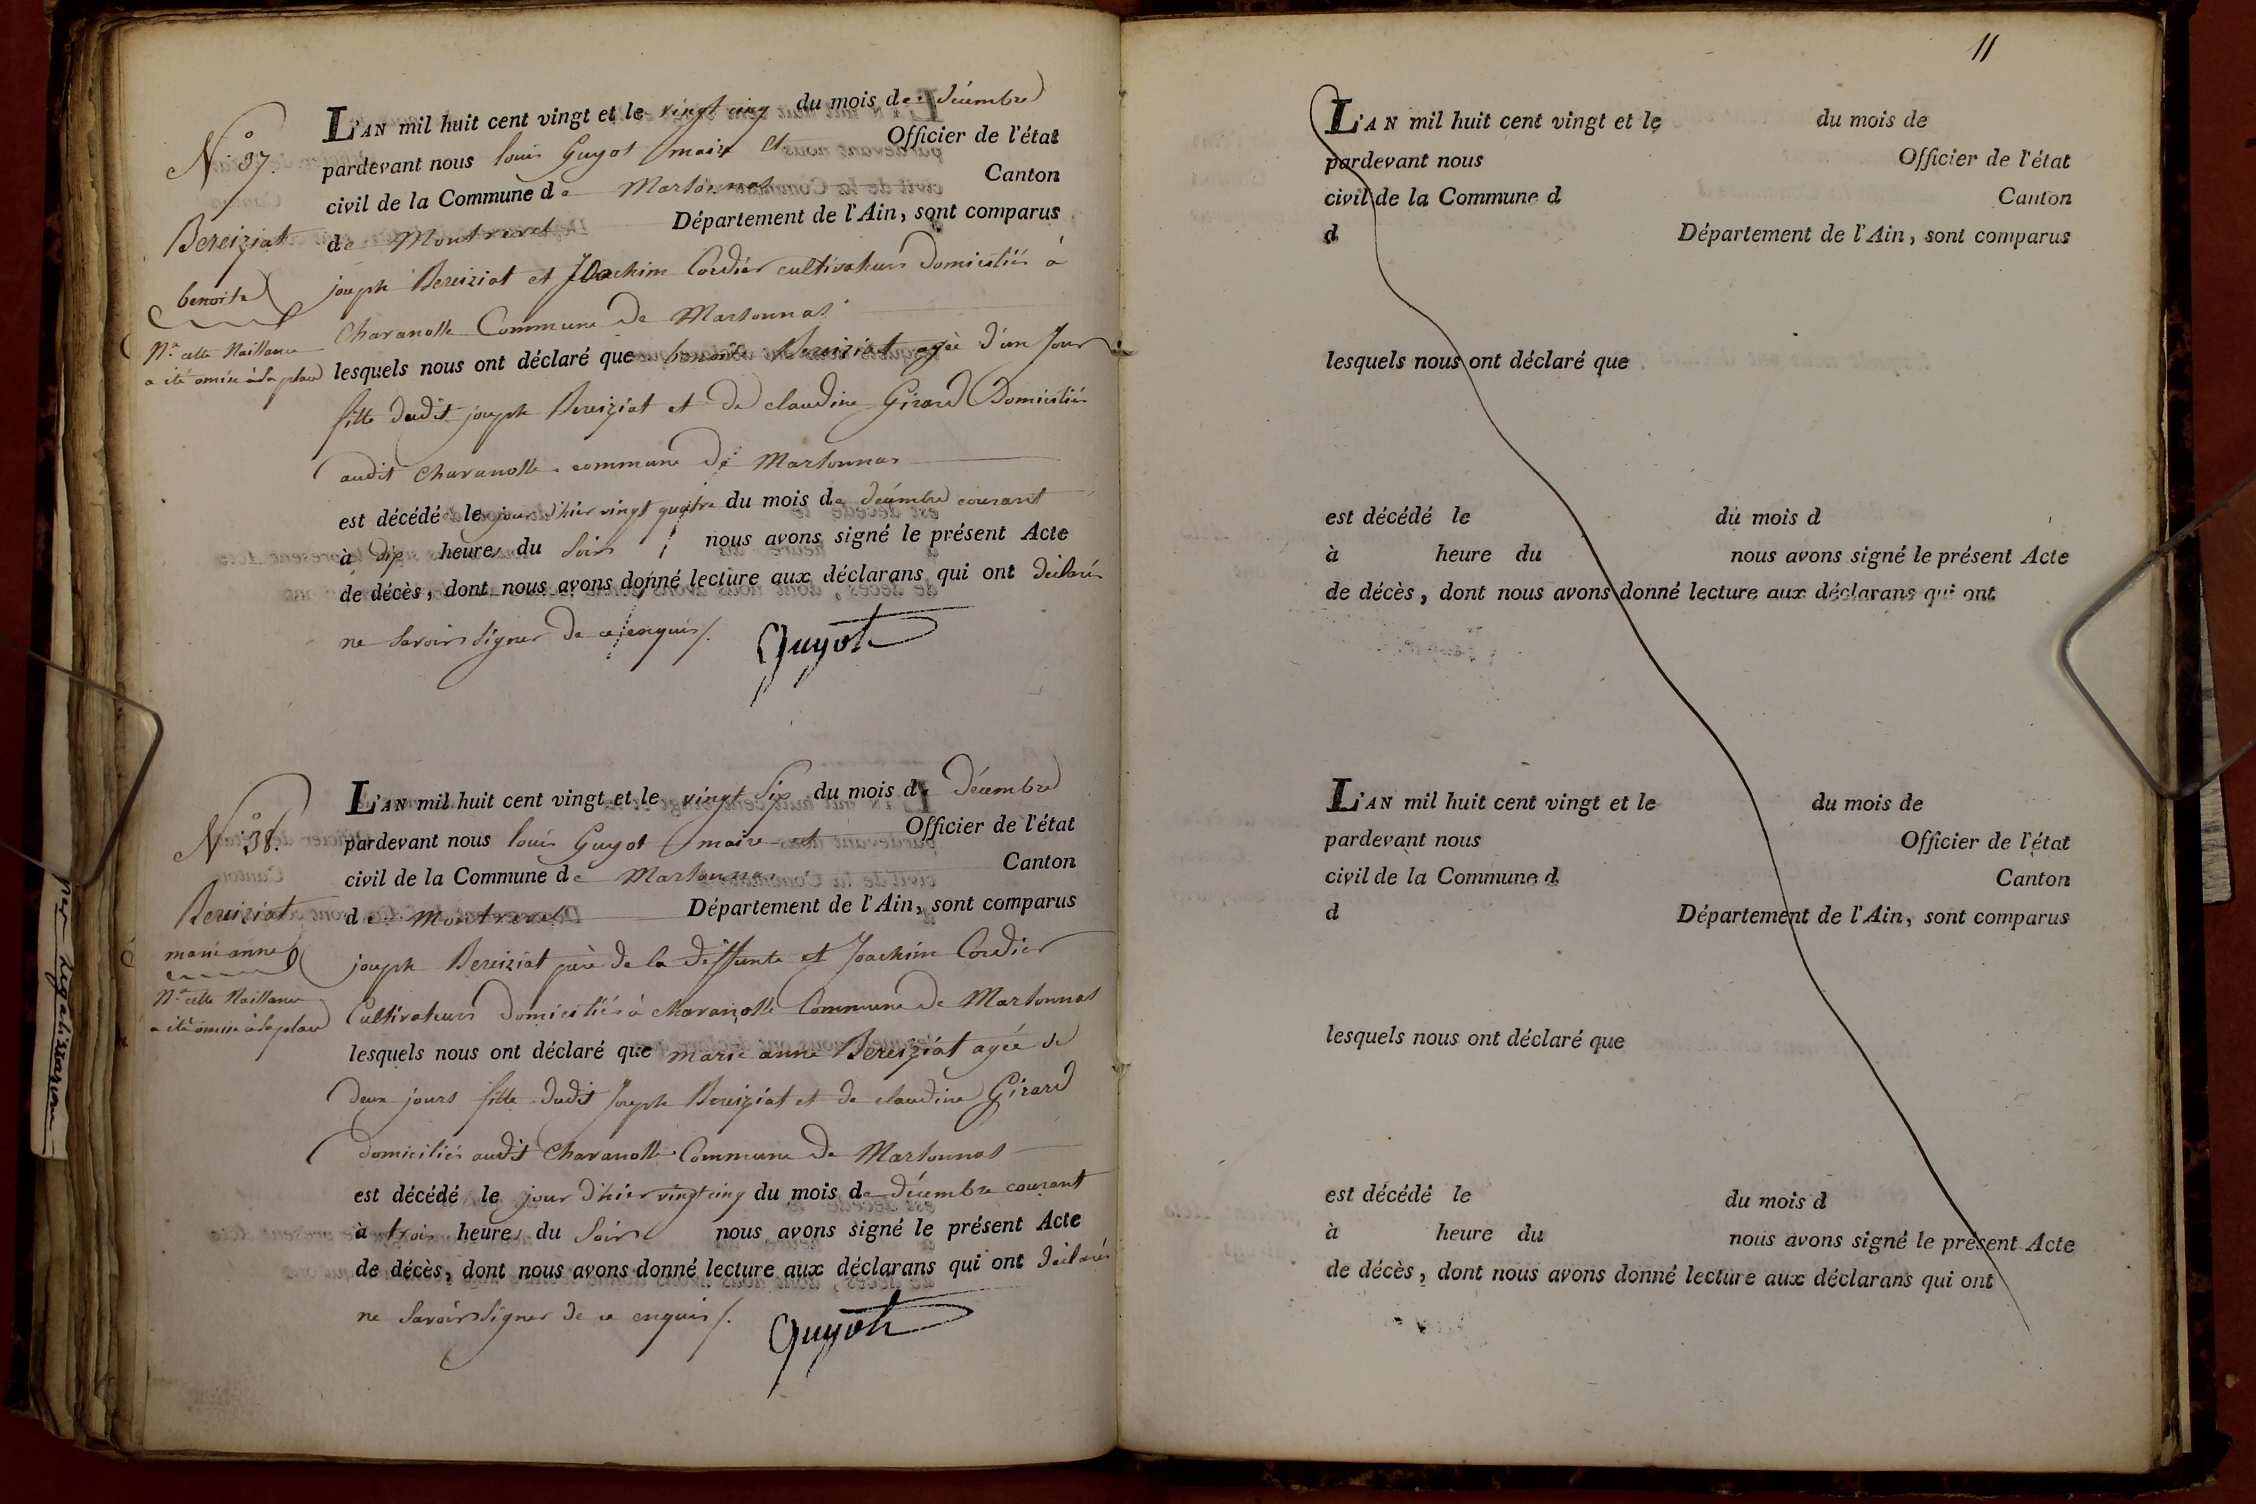 N.° 37.
Bereiziat
benoite
N.a cette Naissance
a été omise à sa place
L'AN mil huit cent vingt et le vingt cinq du mois de décembre
pardevant nous louis Guyot maire et Officier de l'état
civil de la Commune de Marsonnas Canton
de Montrevel Département de l'Ain, sont comparus
joseph Bereiziat et Joachim Cordier cultivateurs domiciliés à
Charanolle Commune de Marsonnas
lesquels nous ont déclaré que benoite Bereiziat agée d'un Jour
fille dudit joseph Bereiziat et de claudine Girard Domiciliés
audit Charanolle commune de Marsonnas
est décédé le jour d'hier vingt quatre du mois de décembre courant
à dix heures du soir nous avons signé le présent Acte
de décès, dont nous avons donné lecture aux déclarans qui ont déclarés
ne savoir signer de ce enquis /. Guyot
N.° 38.
Bereiziat
marie anne
N.a cette Naissance
a été omise à sa place
L'AN mil huit cent vingt et le vingt six du mois de Décembre
pardevant nous louis Guyot maire et Officier de l'état
civil de la Commune de Marsonnas Canton
de Montrevel Département de l'Ain, sont comparus
joseph Bereiziat père de la deffunte et Joachim Cordier
Cultivateurs domiciliés à charanolle Commune de Marsonnas
lesquels nous ont déclaré que marie anne Bereiziat agée de
deux jours fille dudit Joseph Bereiziat et de claudine Girard
domiciliés audit Charanolle Commune de Marsonnas
est décédé le jour d'hier vingt cinq du mois de décembre courant
à trois heures du soir nous avons signé le présent Acte
de décès, dont nous avons donné lecture aux déclarans qui ont déclarés
ne savoir signer de ce enquis /. Guyot
11
L'AN mil huit cent vingt et le du mois de
pardevant nous Officier de l'état
civil de la Commune d Canton
d Département de l'Ain, sont comparus
lesquels nous ont déclaré que
est décédé le du mois d
à heure du nous avons signé le présent Acte
de décès, dont nous avons donné lecture aux déclarans qui ont
L'AN mil huit cent vingt et le du mois de
pardevant nous Officier de l'état
civil de la Commune d Canton
d Département de l'Ain, sont comparus
lesquels nous ont déclaré que
est décédé le du mois d
à heure du nous avons signé le présent Acte
de décès, dont nous avons donné lecture aux déclarans qui ont